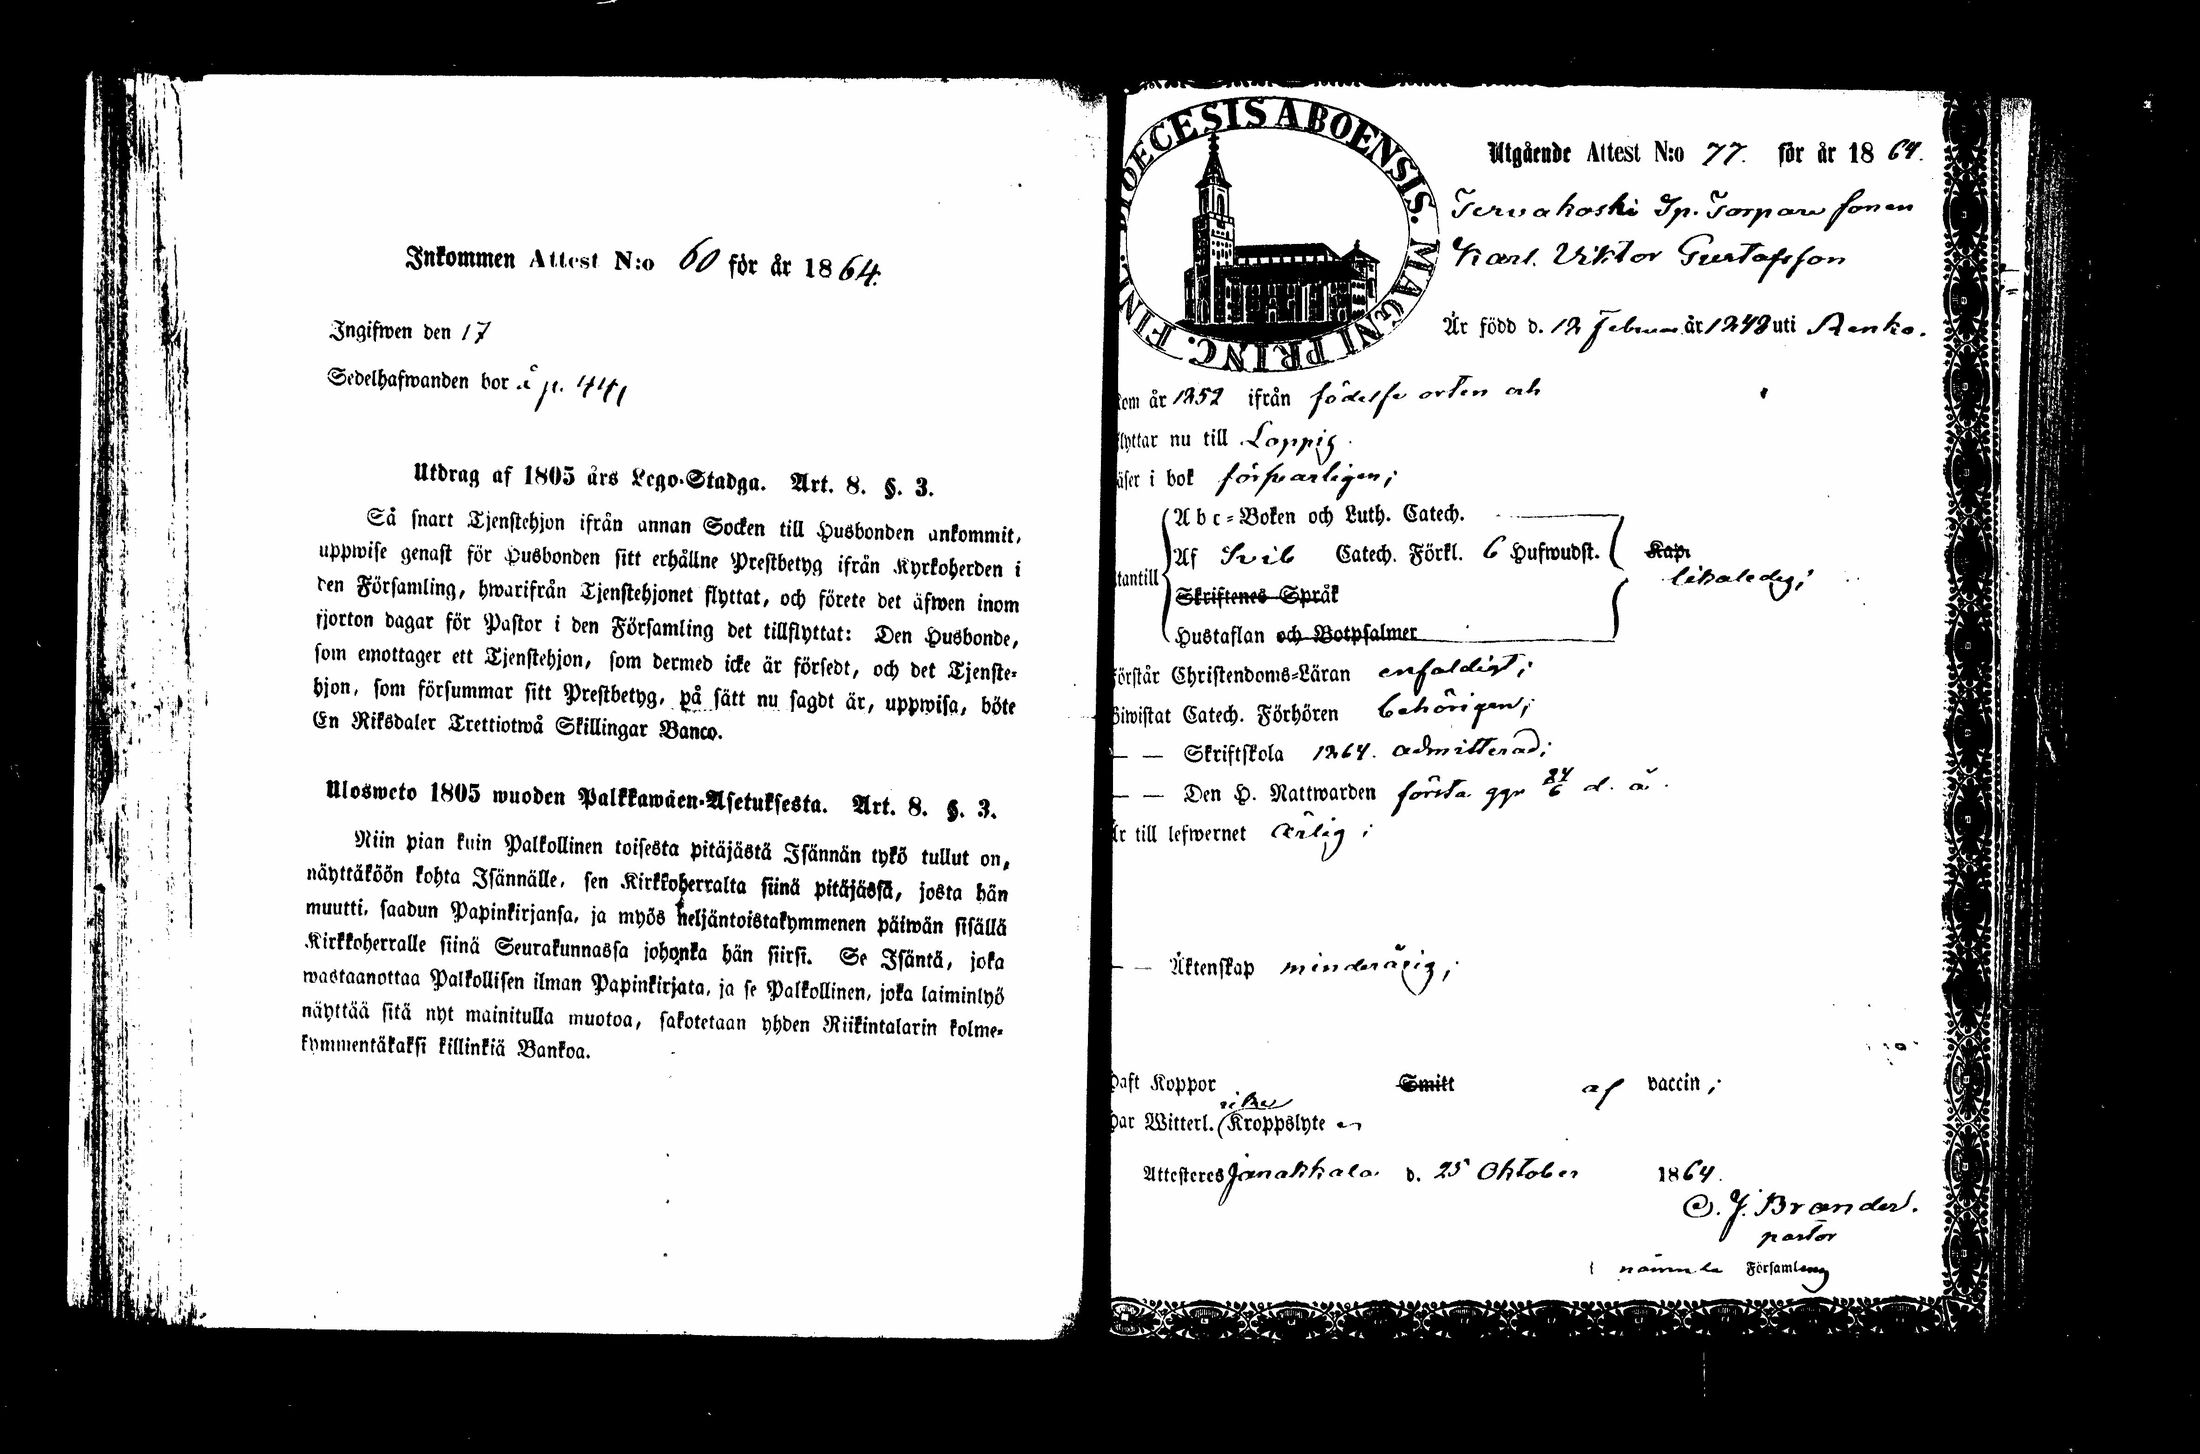 Inkommen Attest N:o 60 för år 1864.
Ingifwen den 17
Sedelhafwanden bor å p. 441
Utdrag af 1805 års Lego-Stadga. Art. 8. §. 3.
Så snart Tjenstehjon ifrån annan Socken till Husbonden ankommit,
uppwise genast för Husbonden sitt erhållne Prestbetyg ifrån Kyrkoherden i
den Församling, hwarifrån Tjenstehjonet flyttat, och förete det äfwen inom
fjorton dagar för Pastor i den Församling det tillflyttat: Den Husbonde,
som emottager ett Tjenstehjon, som dermed icke är försedt, och det Tjenste-
hjon, som försummar sitt Prestbetyg, på sätt nu sagdt är, uppwisa, böte
En Riksdaler Trettiotwå Skillingar Banco.
Ulosweto 1805 wuoden Palkkawäen-Asetuksesta. Art. 8. §. 3.
Niin pian kuin Palkollinen toisesta pitäjästä Isännän tykö tullut on,
näyttäköön kohta Isännälle, sen Kirkkoherralta siinä pitäjässä, josta hän
muutti, saadun Papinkirjansa, ja myös neljäntoistakymmenen päiwän sisällä
Kirkkoherralle siinä Seurakunnassa johonka hän siirsi. Se Isäntä, joka
wastaanottaa Palkollisen ilman Papinkirjata, ja se Palkollinen, joka laiminlyö
näyttää sitä nyt mainitulla muotoa, sakotetaan yhden Riikintalarin kolme-
kymmentäkaksi killinkiä Bankoa.
DIOECESIS ABOENSIS. MAGNI PRINC. FINL.
Utgående Attest N:o 77. för år 1864.
Tervakoski Sp. Torpare sonen
Karl Viktor Gustafsson
Är född d. 12 Februar. år 1848 uti Renko.
kom år 1852 ifrån födelse orten och
flyttar nu till Loppis.
läser i bok försvarligen;
Abc-Boken och Luth. Catech.
Af Svib Catech. Förkl. 6 Hufwudst. Kap.
utantill likaledes;
Skriftenes Språk
Hustaflan och Botpsalmer
Förstår Christendoms-Läran enfaldigt;
Biwistat Catech. Förhören behörigen;
— — Skriftskola 1864. admitterad;
— — Den H. Nattwarden första ggn 24/6 d. å.
Är till lefwernet ärlig;
— — Äktenskap minderårig;
Haft Koppor Smitt af vaccin;
Har Witterl. Kroppslyte
Attesteres Janakkala d. 25 Oktober 1864.
C. J. Brander.
pastor
i nämnda Församling